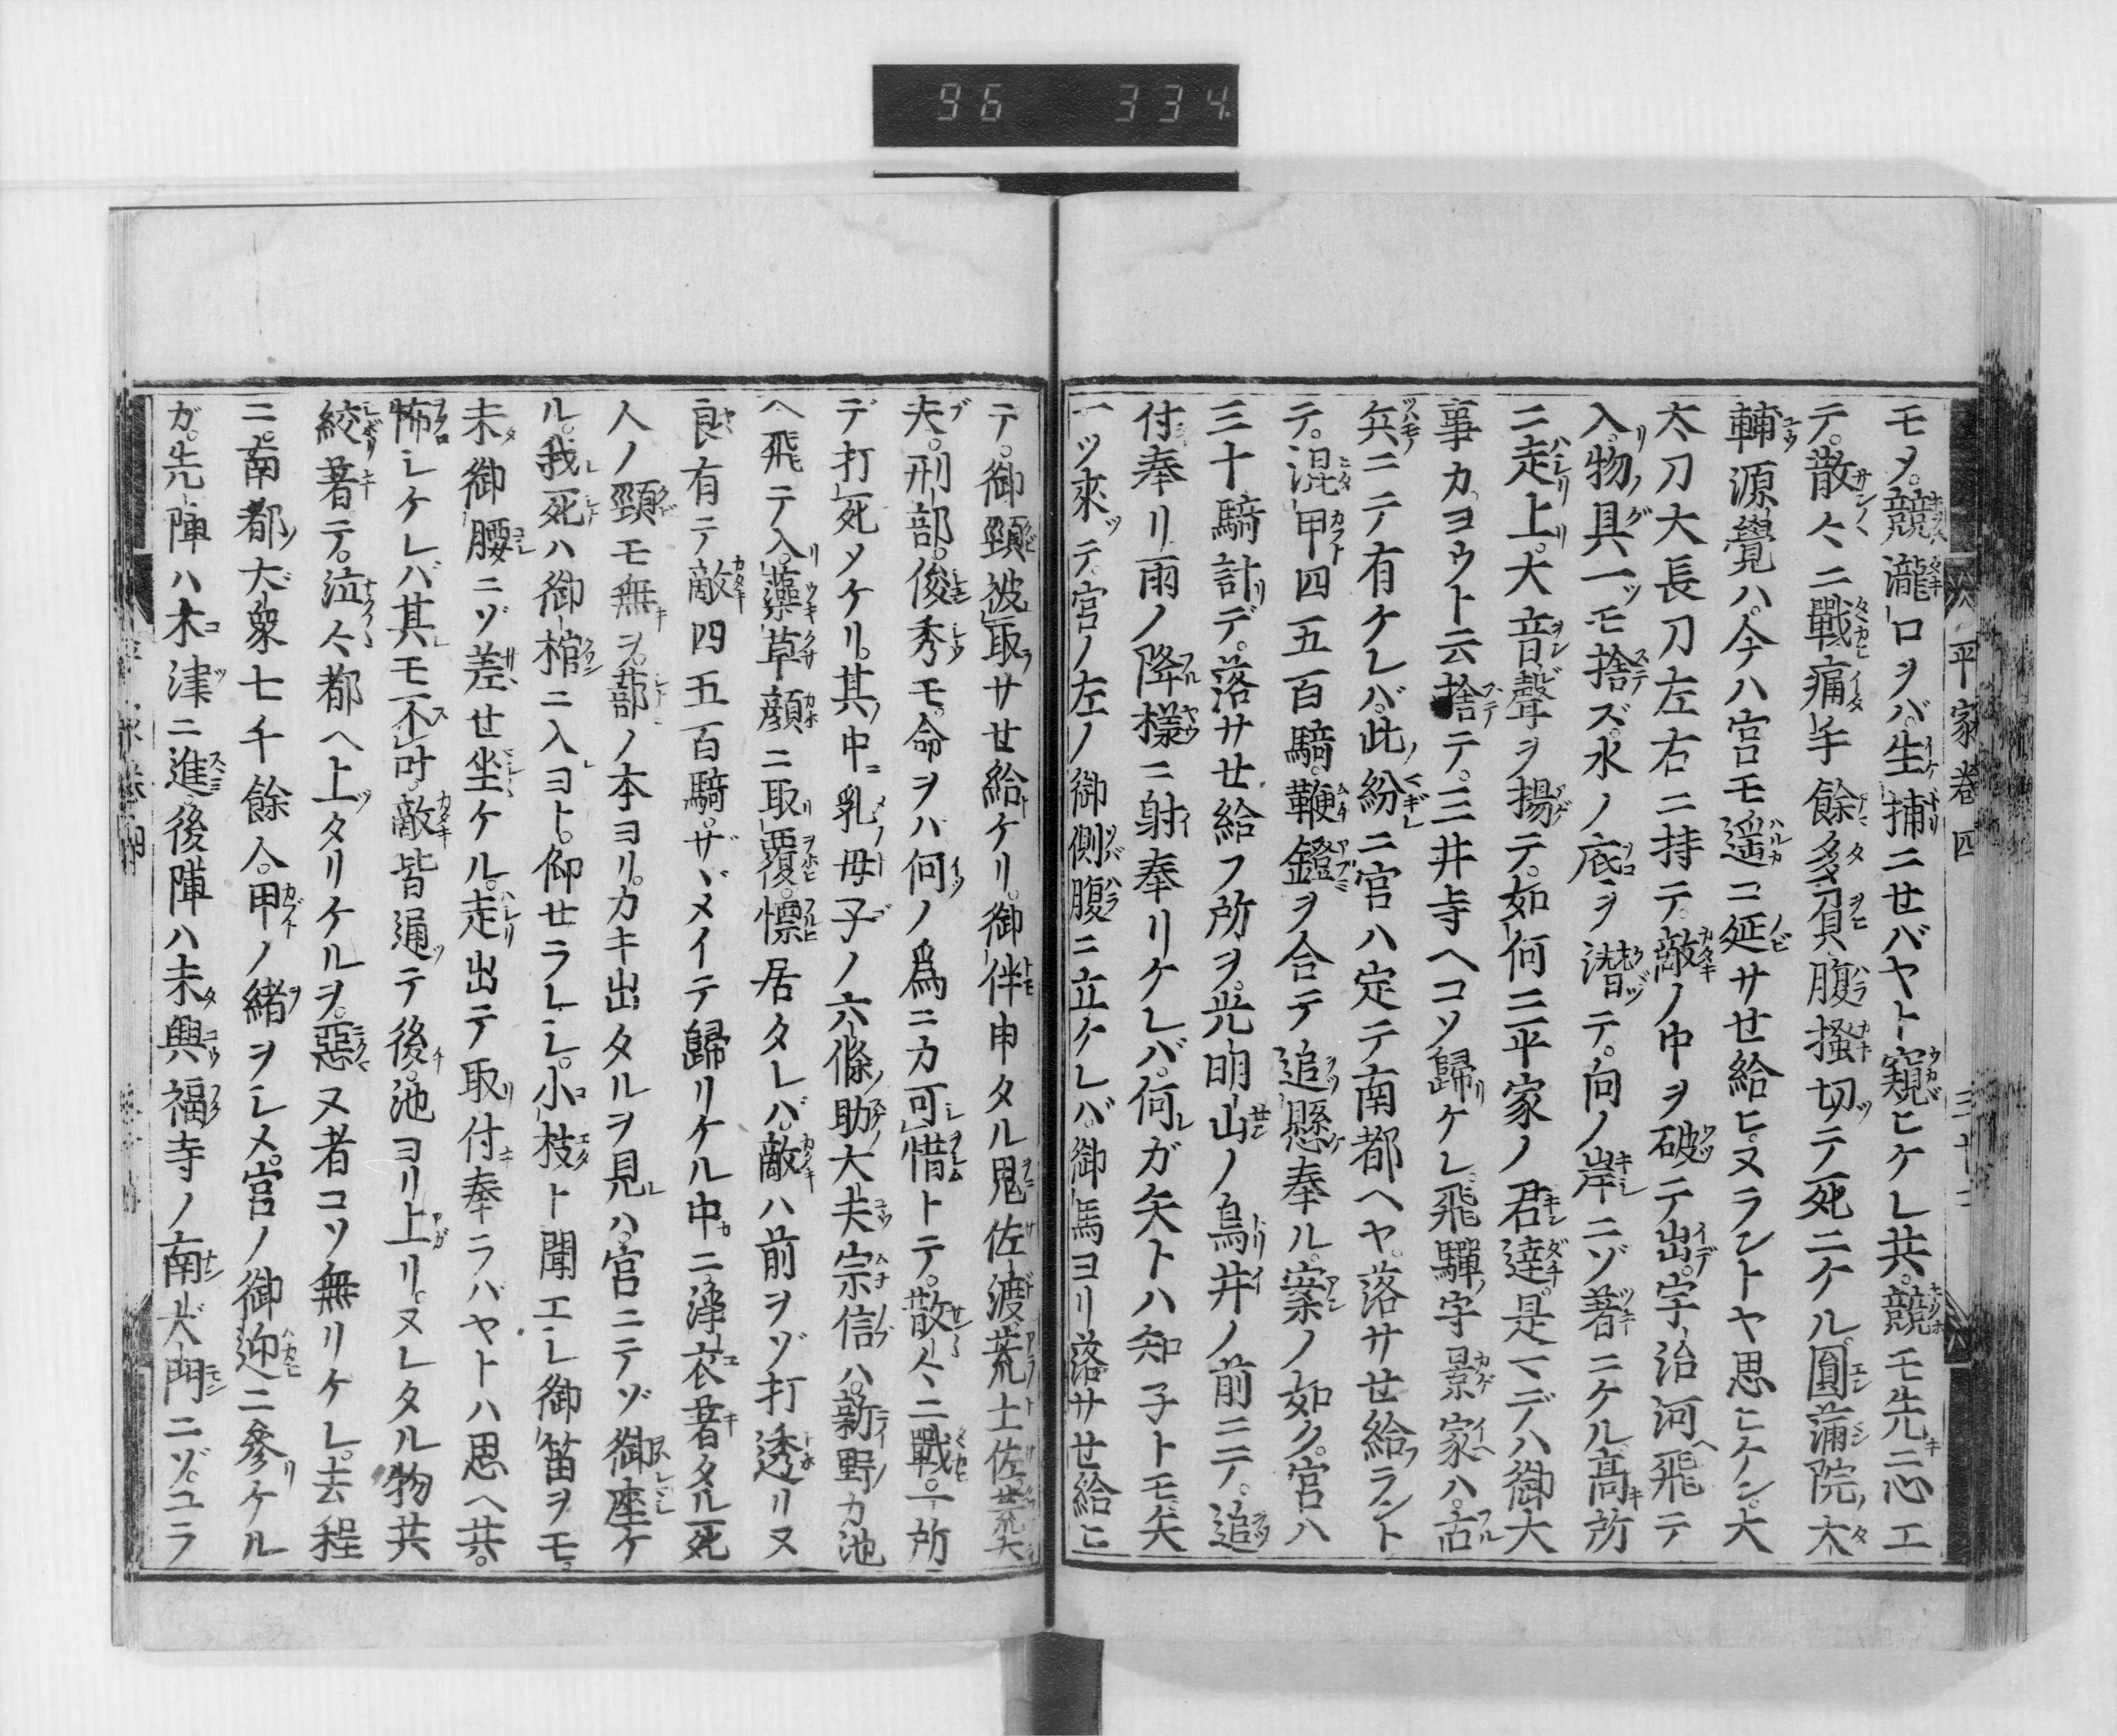 96 334
平家巻四 三十三
モメ。競瀧口ヲバ。生捕ニせバヤト窺ヒケレ共。競モ先ニ心エ
テ。散々ニ戰痛手餘多負。腹搔切テ死ニケル。圓滿院大
輔源覺ハ。今ハ宮モ遥ニ延サせ給ヒヌラントヤ思ヒケン。大
太刀大長刀左右ニ持テ。敵ノ中ヲ破テ出。宇治河ヘ飛テ
入。物具一ツモ捨ズ。水ノ底ヲ潜テ。向ノ岸ニゾ著ニケル。高所
ニ走上。大音聲ヲ揚テ。如何ニ平家ノ君達。是マデハ御大
事カ。ヨウト云捨テ。三井寺ヘコソ歸ケレ。飛驒守景家ハ。古
兵ニテ有ケレバ。此紛ニ宮ハ定テ南都ヘヤ。落サせ給ラント
テ。混甲四五百騎。鞭鐙ヲ合テ追懸奉ル。案ノ如ク。宮ハ
三十騎計デ。落サせ給フ所ヲ。光明山ノ鳥井ノ前ニテ。追
付奉リ。雨ノ降様ニ射奉リケレバ。何ガ矢トハ知子トモ矢
一ツ來テ。宮ノ左ノ御側腹ニ立ケレバ。御馬ヨリ落サせ給ヒ
テ。御頸被取サせ給ケリ。御伴申タル鬼佐渡。荒土佐。荒大
夫。刑部。俊秀モ。命ヲハ何ノ爲ニカ可惜トテ。散々ニ戰。一所
デ打死メケリ。其中乳母子ノ六條助大夫宗信ハ。新野カ池
ヘ飛テ入。藻草顔ニ取覆。慓居タレバ。敵ハ前ヲゾ打透リヌ
良有テ敵四五百騎。ザヾメイテ歸リケル中ニ。淨衣著タル死
人ノ頸モ無ヲ。蔀ノ本ヨリ。カキ出タルヲ見ハ。宮ニテゾ御座ケ
ル。我死ハ御棺ニ入ヨト。仰せラレレ。小枝ト聞エレ御笛ヲモ。
未御腰ニゾ差せ坐ケル。走出テ取付奉ラバヤトハ思ヘ共。
怖レケレバ其モ不叶。敵皆通テ後。池ヨリ上リ。ヌレタル物共
絞著テ。泣々都ヘ上タリケルヲ。惡ヌ者コソ無リケレ。去程
ニ。南都大衆七千餘人。甲ノ緒ヲレメ。宮ノ御迎ニ參ケル
ガ。先陣ハ木津ニ進。後陣ハ未興福寺ノ南大門ニゾ。ユラ